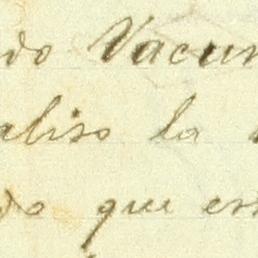 do Vacun
aliso la
do que es